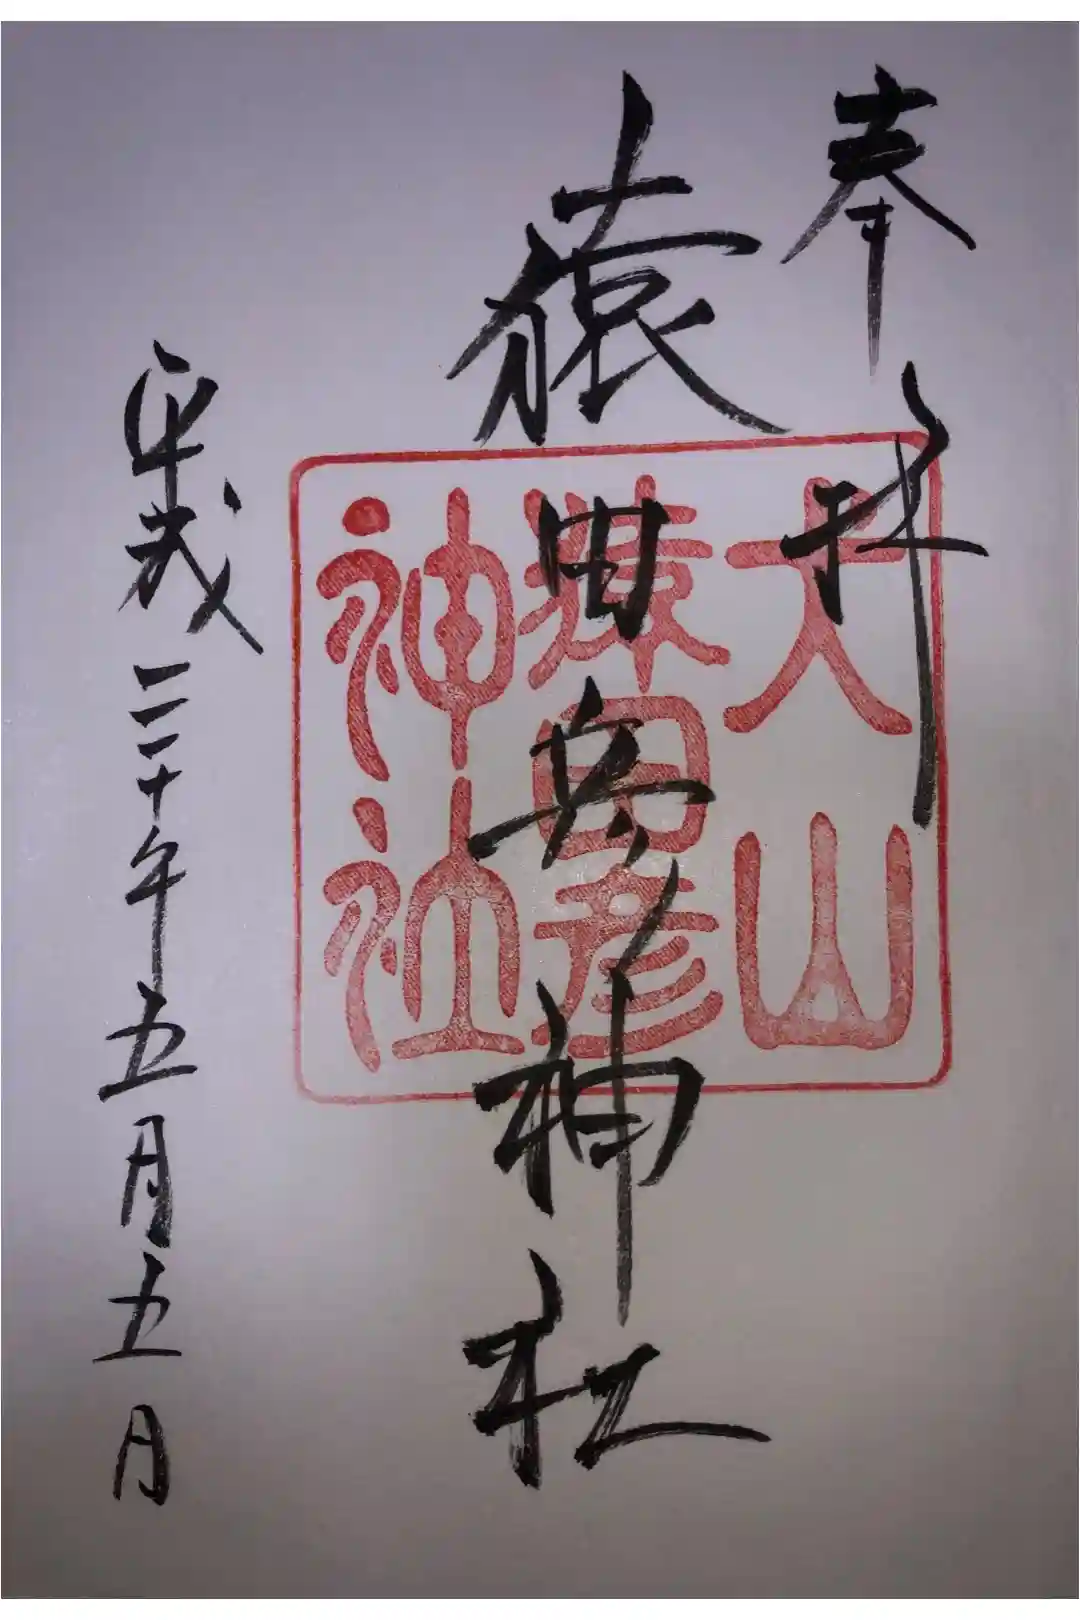 奉拝
猿田彦神社
平成三十年五月五日
犬山
猿田彦
神社